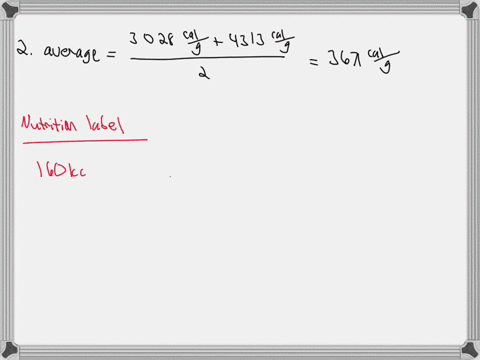 2. average = 3028 cal/g + 4313 cal/g
2
= cal/g
Nutrition label
160kc